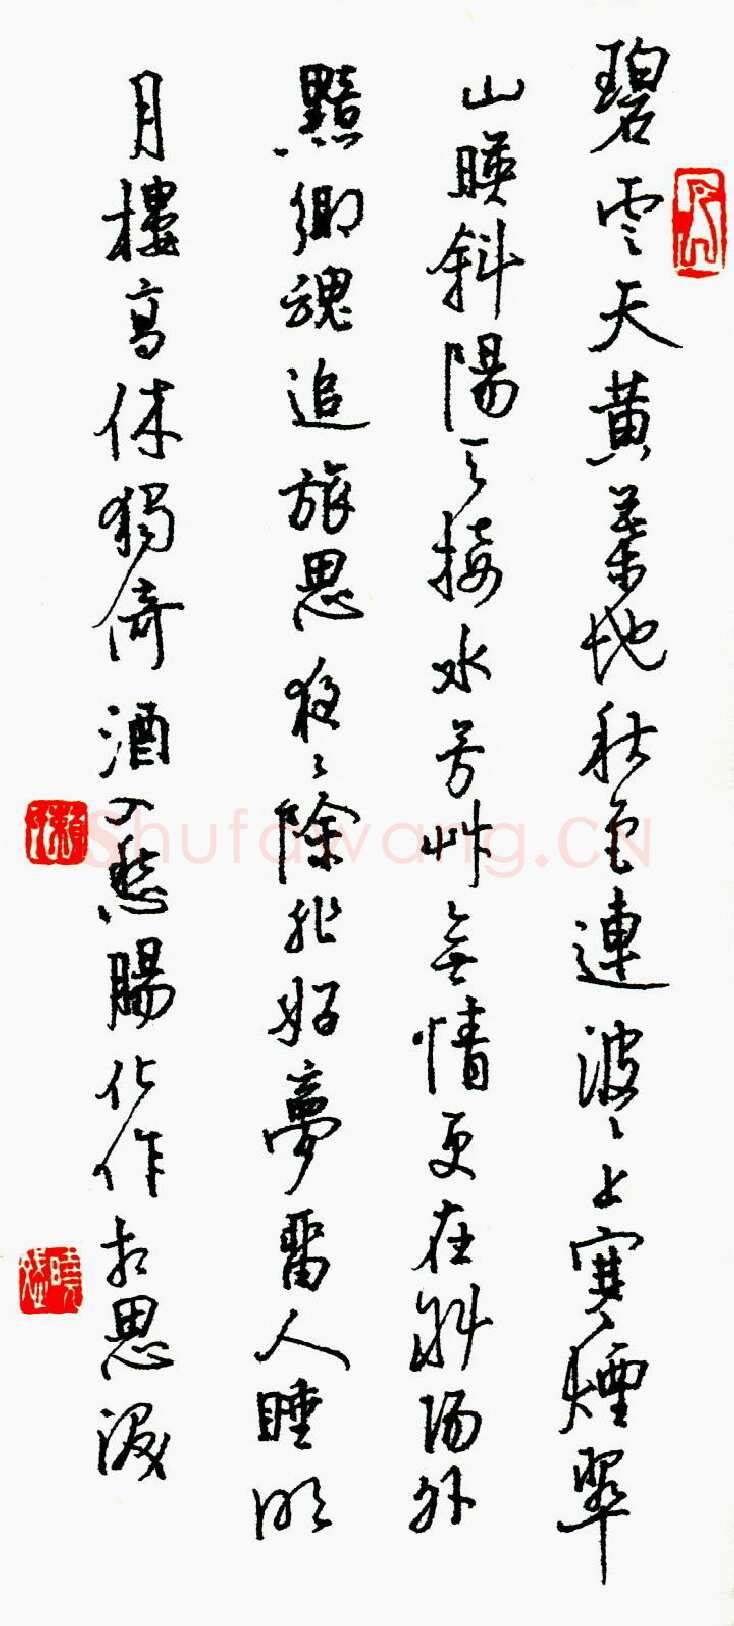 碧雲天黃葉地秋色連波々上寒煙翠
山暎斜陽天接水芳艸無情更在斜陽外
黯鄉魂追旅思夜々除非好夢留人睡明
月樓高休獨倚酒入愁腸化作相思淚
Shufawang.CN